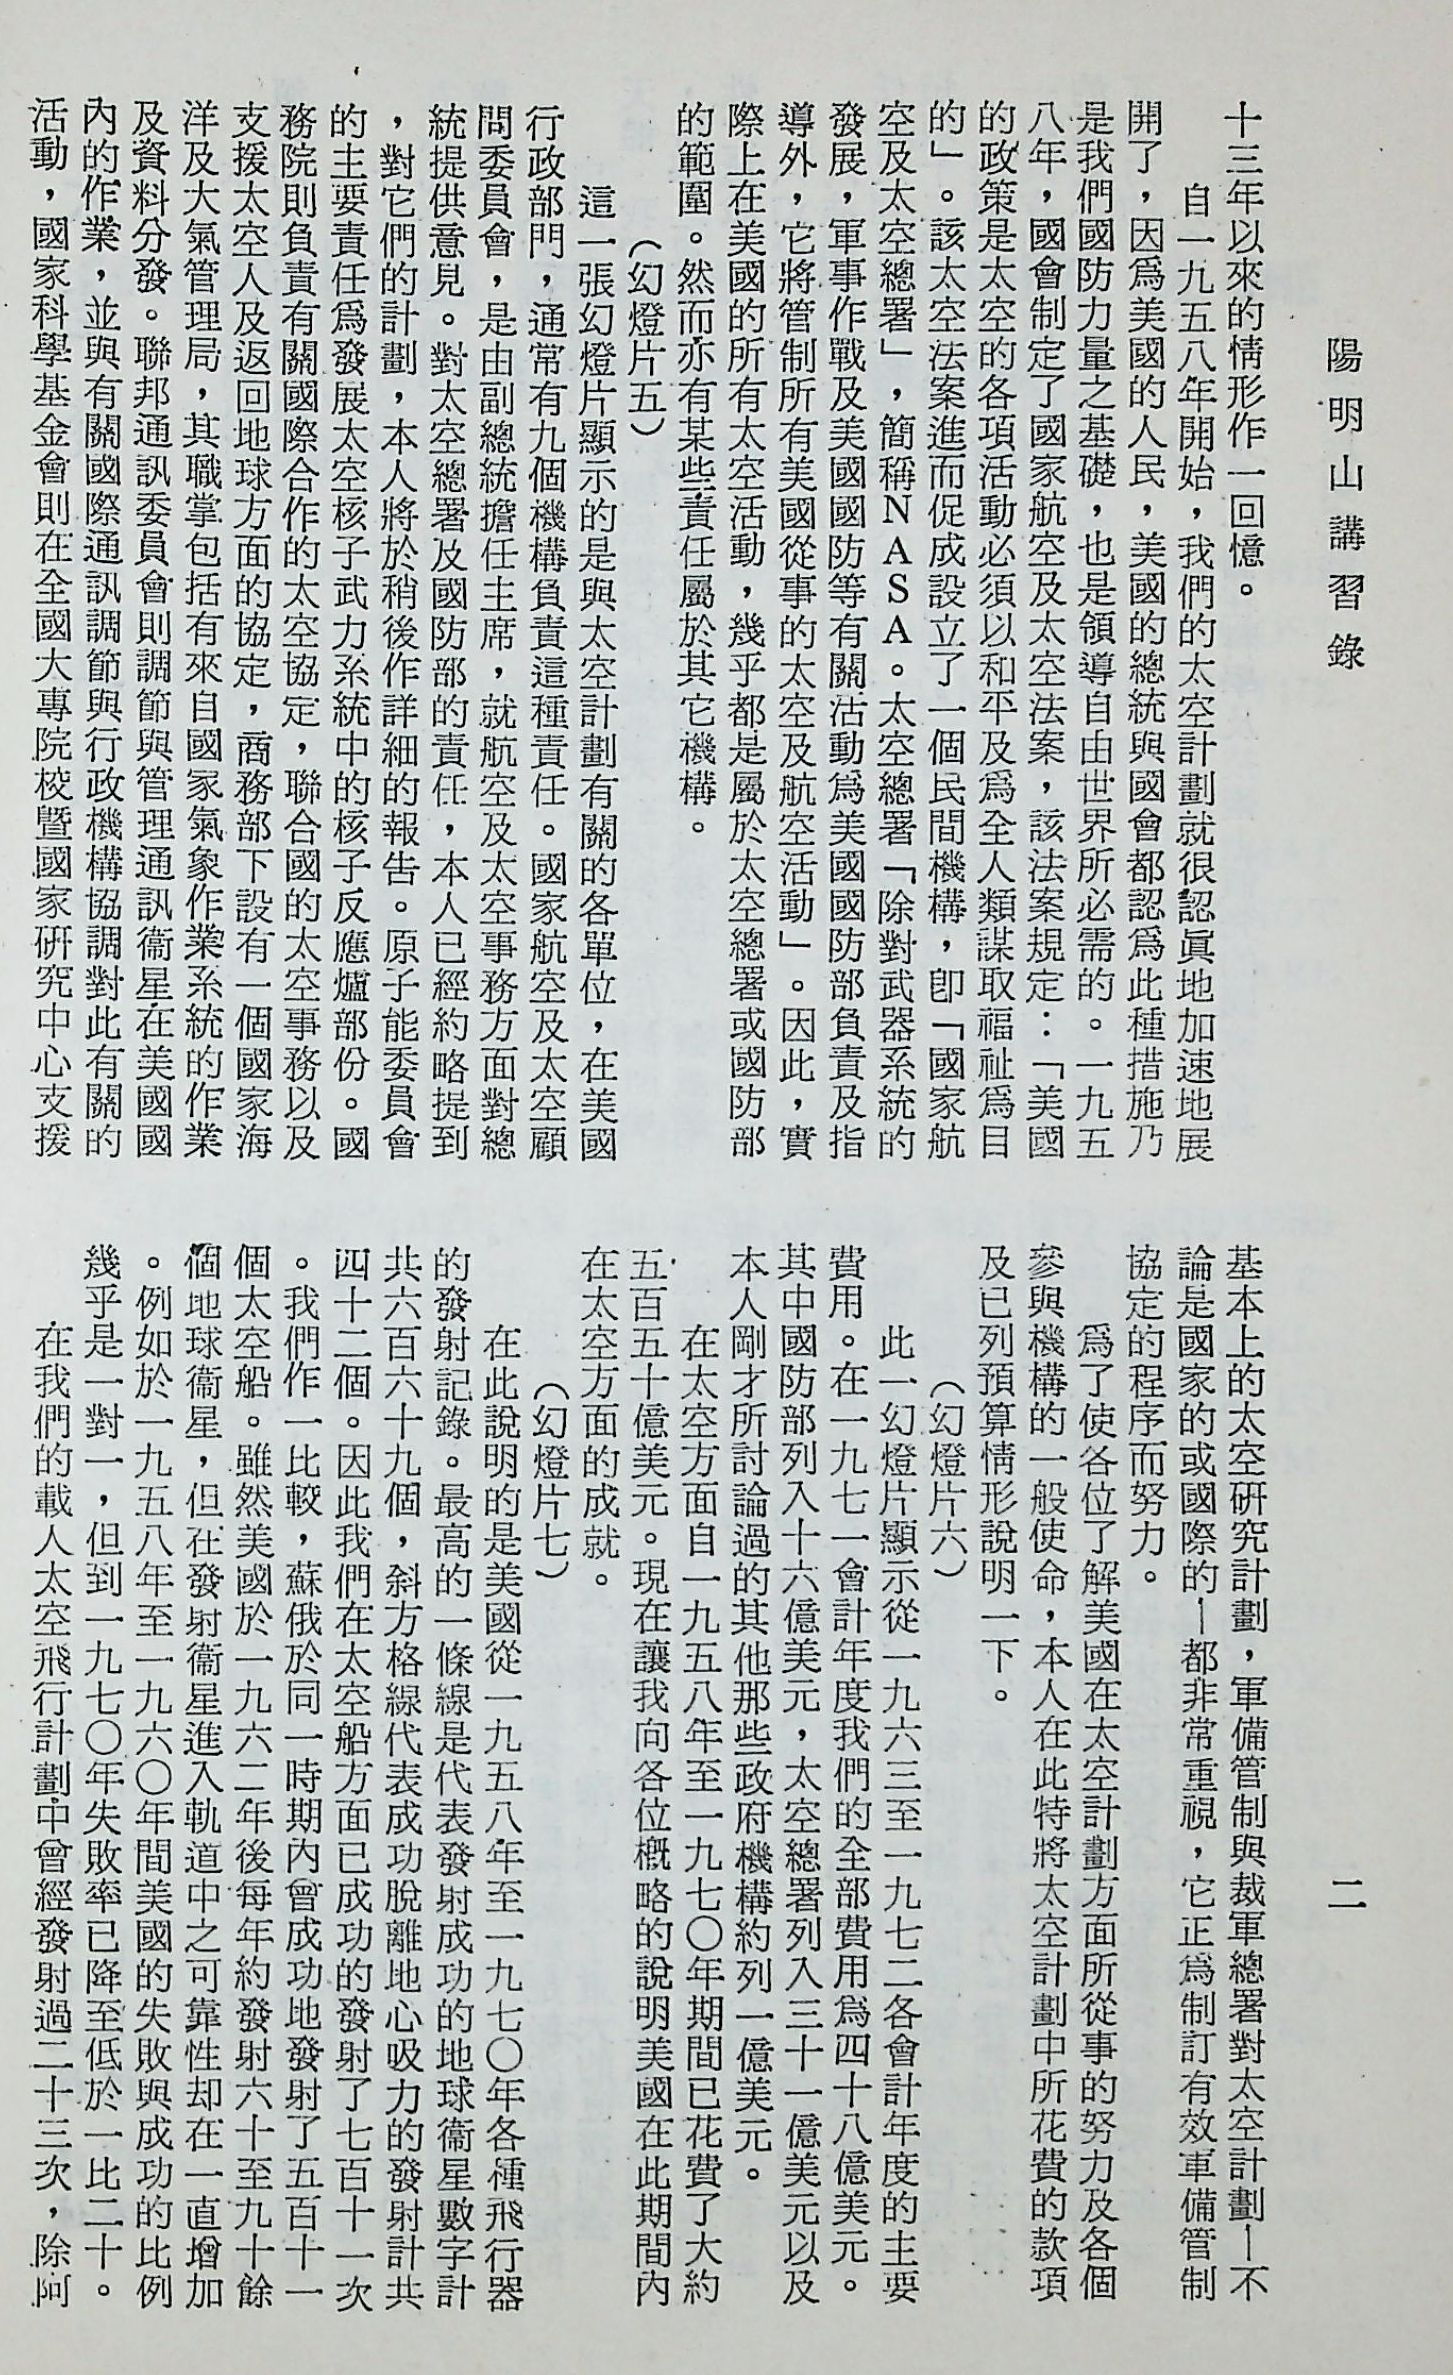 陽明山講習錄
二
十三年以來的情形作一回憶。
自一九五八年開始，我們的太空計劃就很認眞地加速地展
開了，因爲美國的人民，美國的總統與國會都認爲此種措施乃
是我們國防力量之基礎，也是領導自由世界所必需的。一九五
八年，國會制定了國家航空及太空法案，該法案規定：「美國
的政策是太空的各項活動必須以和平及爲全人類謀取福祉爲目
的」。該太空法案進而促成設立了一個民間機構，卽「國家航
空及太空總署」，簡稱NASA。太空總署「除對武器系統的
發展，軍事作戰及美國國防等有關活動爲美國國防部負責及指
導外，它將管制所有美國從事的太空及航空活動」。因此，實
際上在美國的所有太空活動，幾乎都是屬於太空總署或國防部
的範圍。然而亦有某些責任屬於其它機構。
（幻燈片五）
這一張幻燈片顯示的是與太空計劃有關的各單位，在美國
行政部門，通常有九個機構負責這種責任。國家航空及太空顧
問委員會，是由副總統擔任主席，就航空及太空事務方面對總
統提供意見。對太空總署及國防部的責任，本人已經約略提到
，對它們的計劃，本人將於稍後作詳細的報告。原子能委員會
的主要責任爲發展太空核子武力系統中的核子反應爐部份。國
務院則負責有關國際合作的太空協定，聯合國的太空事務以及
支援太空人及返回地球方面的協定，商務部下設有一個國家海
洋及大氣管理局，其職掌包括有來自國家氣象作業系統的作業
及資料分發。聯邦通訊委員會則調節與管理通訊衞星在美國國
內的作業，並與有關國際通訊調節與行政機構協調對此有關的
活動，國家科學基金會則在全國大專院校暨國家硏究中心支援
基本上的太空硏究計劃，軍備管制與裁軍總署對太空計劃—不
論是國家的或國際的—都非常重視，它正爲制訂有效軍備管制
協定的程序而努力。
爲了使各位了解美國在太空計劃方面所從事的努力及各個
參與機構的一般使命，本人在此特將太空計劃中所花費的款項
及已列預算情形說明一下。
（幻燈片六）
此一幻燈片顯示從一九六三至一九七二各會計年度的主要
費用。在一九七一會計年度我們的全部費用爲四十八億美元。
其中國防部列入十六億美元，太空總署列入三十一億美元以及
本人剛才所討論過的其他那些政府機構約列一億美元。
在太空方面自一九五八年至一九七〇年期間已花費了大約
五百五十億美元。現在讓我向各位概略的說明美國在此期間內
在太空方面的成就。
（幻燈片七）
在此說明的是美國從一九五八年至一九七〇年各種飛行器
的發射記錄。最高的一條線是代表發射成功的地球衞星數字計
共六百六十九個，斜方格線代表成功脫離地心吸力的發射計共
四十二個。因此我們在太空船方面已成功的發射了七百十一次
。我們作一比較，蘇俄於同一時期內曾成功地發射了五百十一
個太空船。雖然美國於一九六二年後每年約發射六十至九十餘
個地球衞星，但在發射衞星進入軌道中之可靠性却在一直增加
。例如於一九五八年至一九六〇年間美國的失敗與成功的比例
幾乎是一對一，但到一九七〇年失敗率已降至低於一比二十。
在我們的載人太空飛行計劃中曾經發射過二十三次，除阿